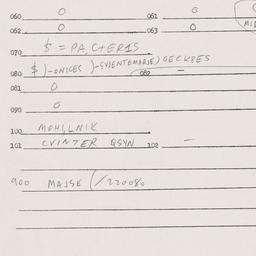 060 0 061 0
062 0 063 0
070 $ = PA, CTER1S
080 $ )-ONICES )-SVIENTEMARIE) OECKBES
082 —
081 0
090 0
100 MOHILNIK
101 CVINTER QSYN 102 —
900 MAJSE (/220080